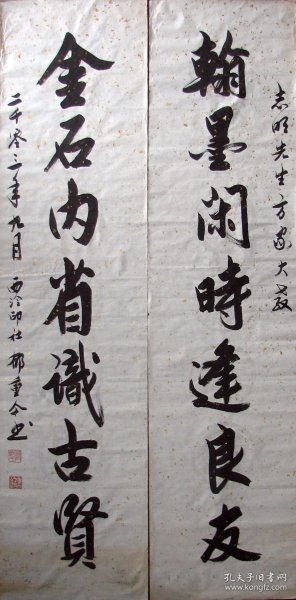 志明先生方家大教
翰墨闲時逢良友
金石内省識古賢
二千零三年九月 西泠印社 郁重今书
孔夫子旧书网